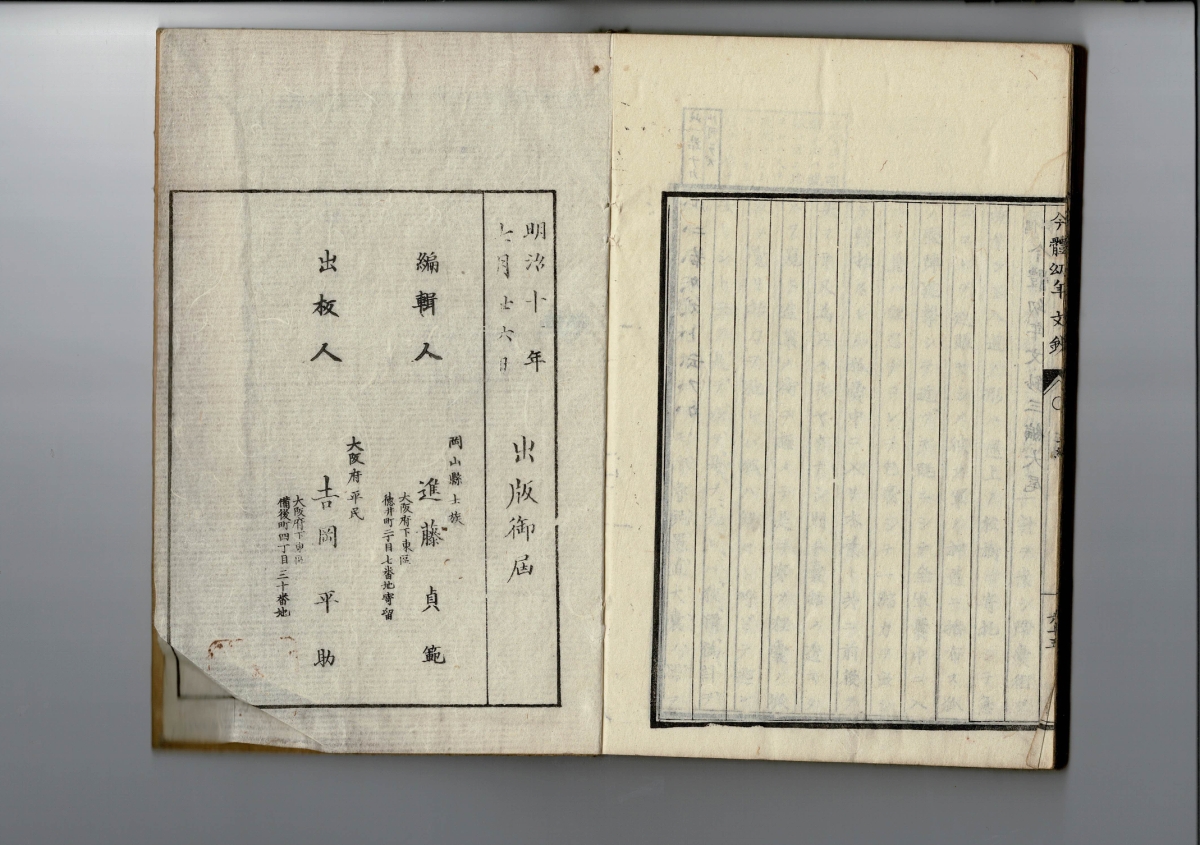 今體幼年文鈔
六十五
明治十年
七月廿六日
出版御届
編輯人
岡山縣士族
進藤貞範
大阪府下東區
徳井町二丁目七番地寄留
出板人
大阪府平民
吉岡平助
大阪府下東區
備後町四丁目三十番地